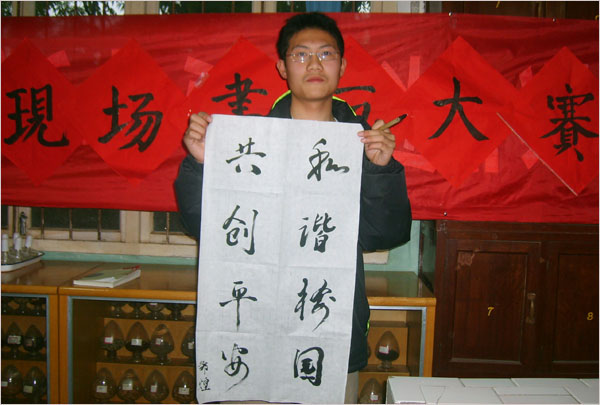 現场書大賽
和谐校园
共创平安